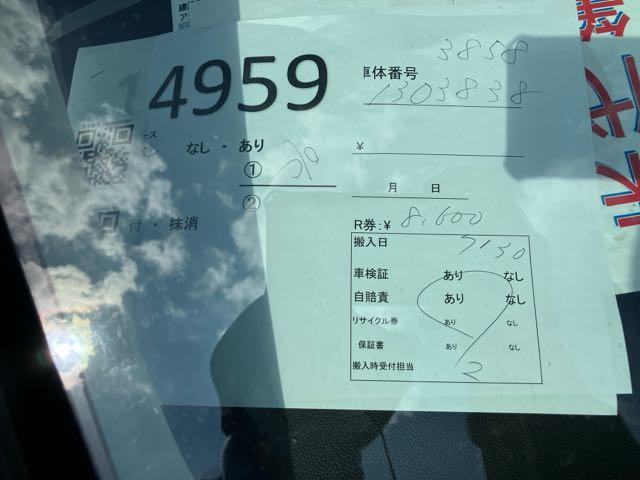 14959
3858
車体番号 1303838
なし ・ あり
① 
¥
②
月 日
付 ・ 抹消
R券:¥ 8,600
搬入日 7/30
車検証 あり なし
自賠責 あり なし
リサイクル券 あり なし
保証書 あり なし
搬入時受付担当 2